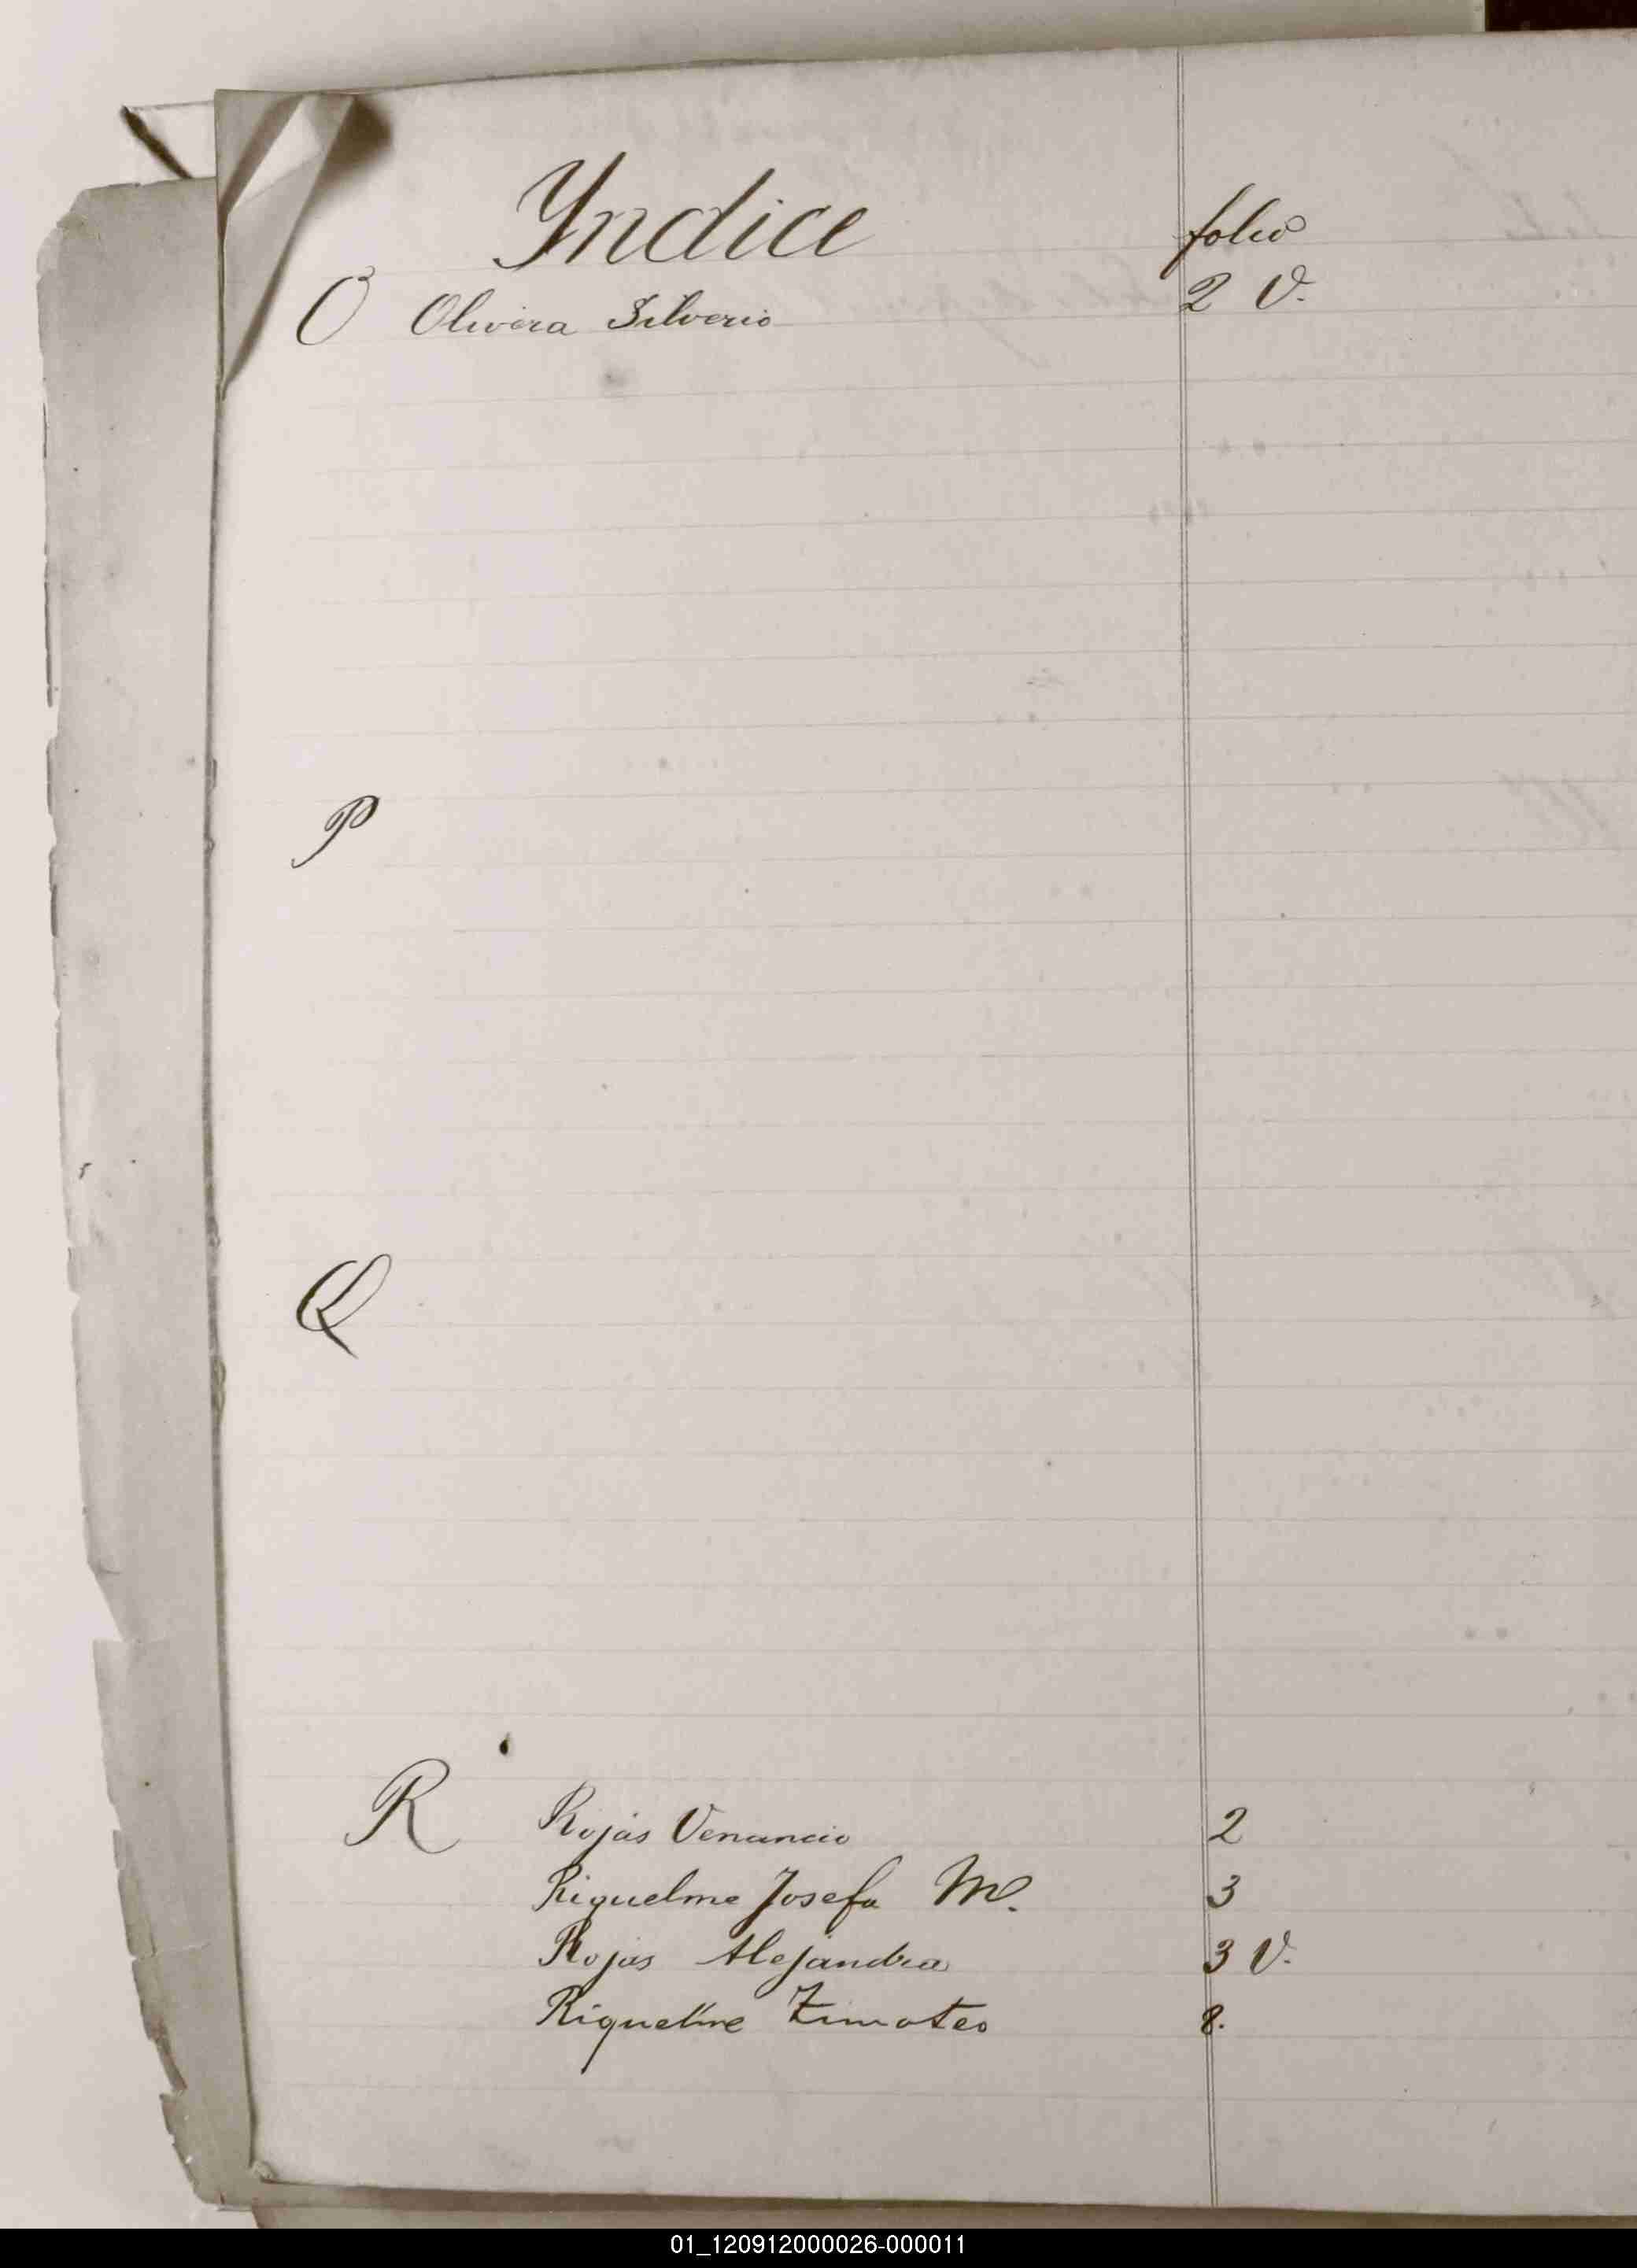 Yndice folio
O Olivera Silverio 2 V.
P
Q
R Rojas Venancio 2
Riquelme Josefa M. 3
Rojas Alejandra 3 V.
Riquelme Timoteo 8.
01_120912000026-000011